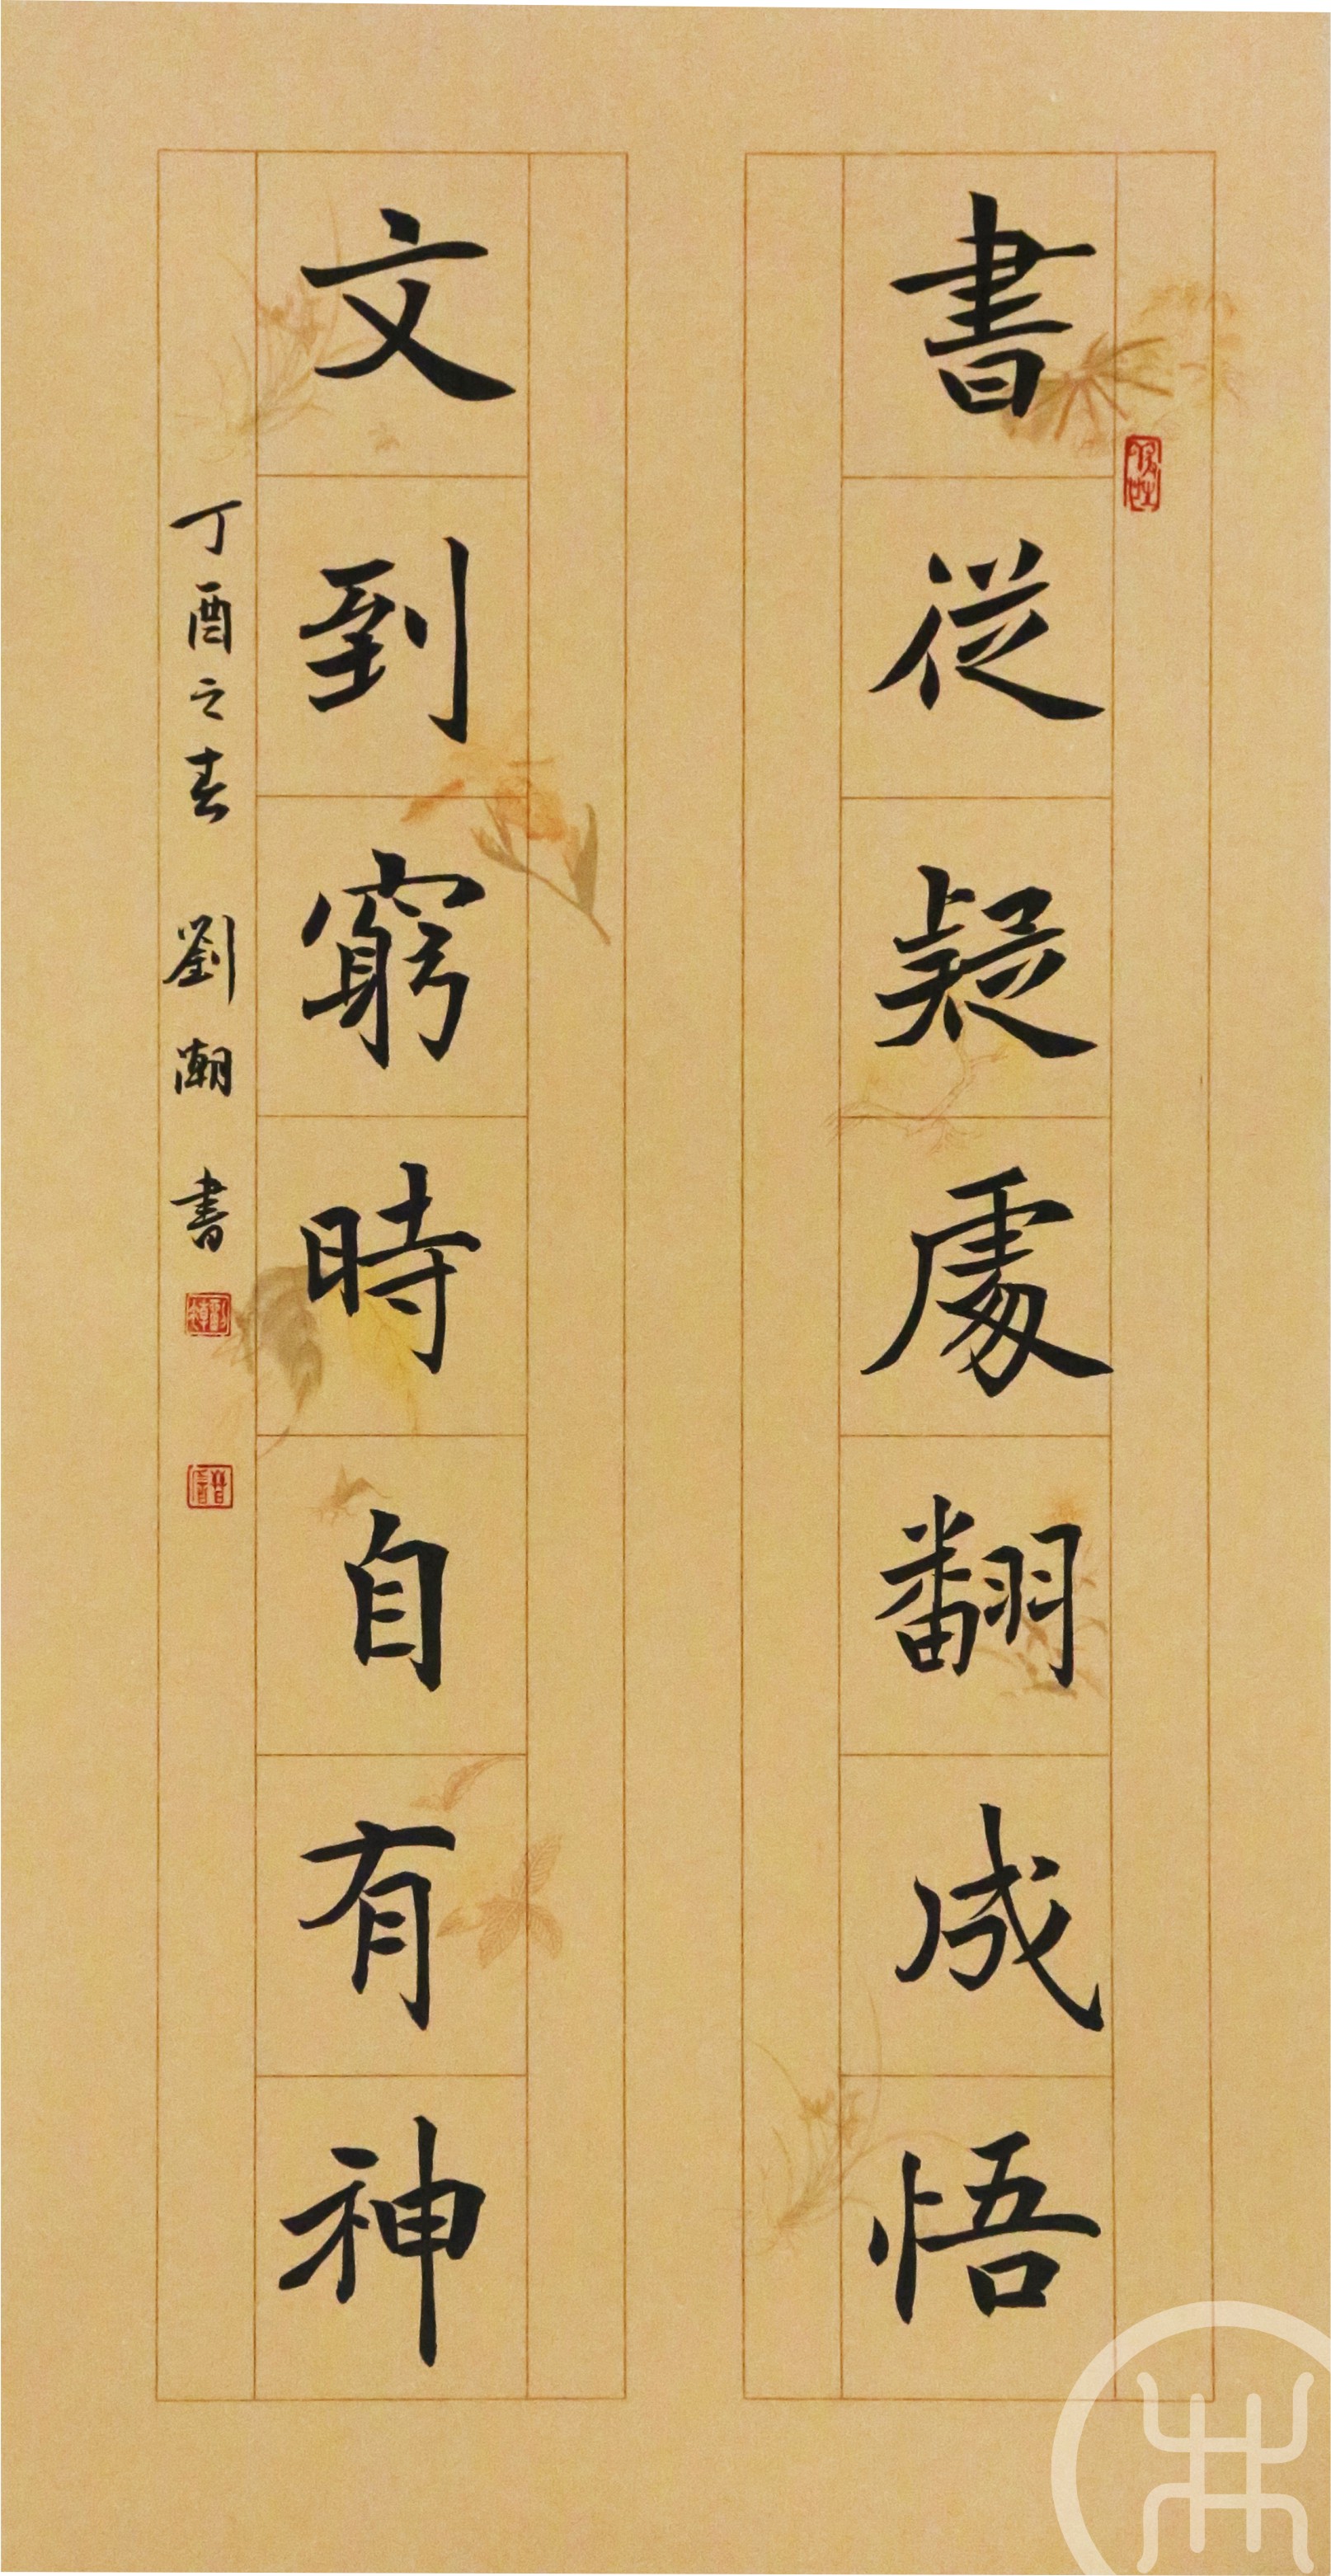 書從疑處翻成悟
文到窮時自有神
丁酉之春 劉潮 書